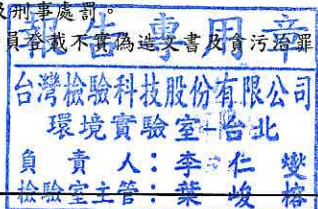 及刑事處罰。
員登載不實偽造文書及貪污治罪
報告專用章
台灣檢驗科技股份有限公司
環境實驗室-台北
負責人：李仁燮
檢驗室主管：葉峻榕